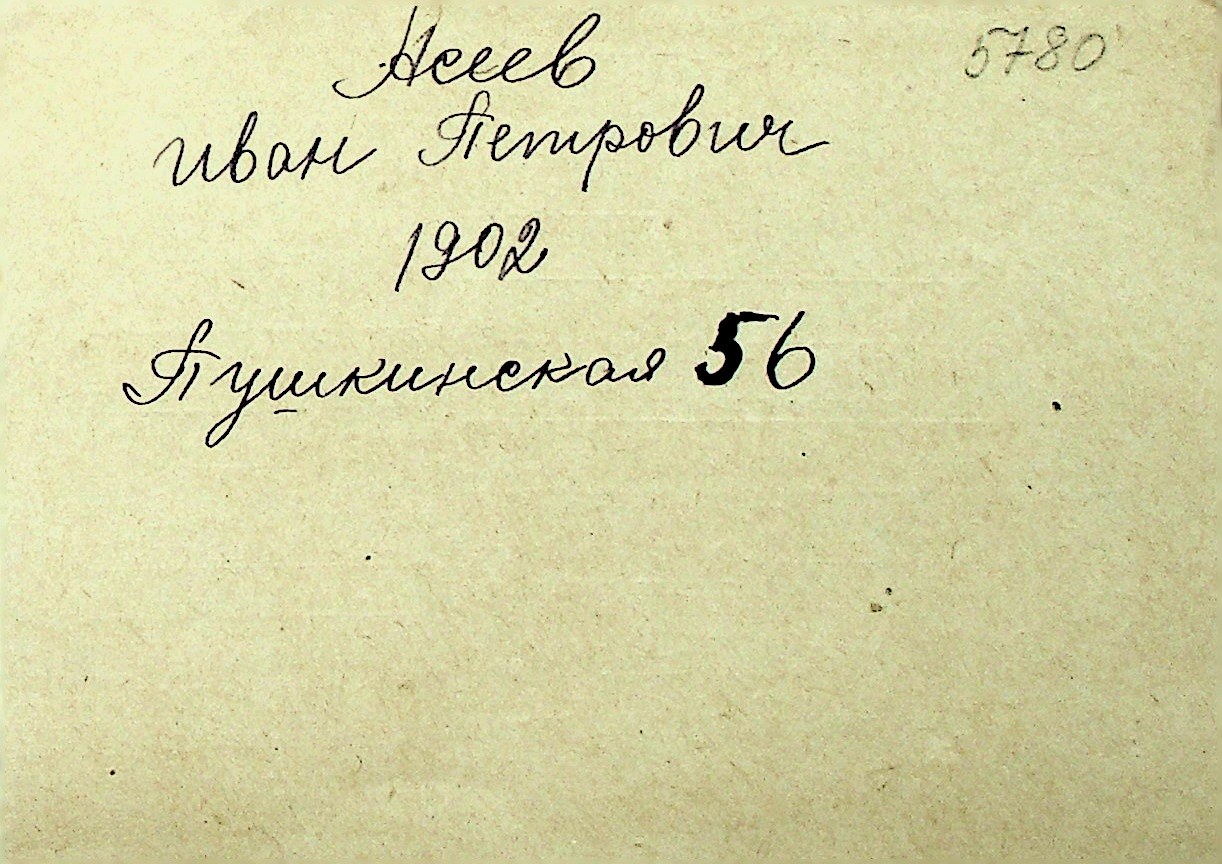 Асеев 5780
Иван Петрович
1902
Пушкинская 56